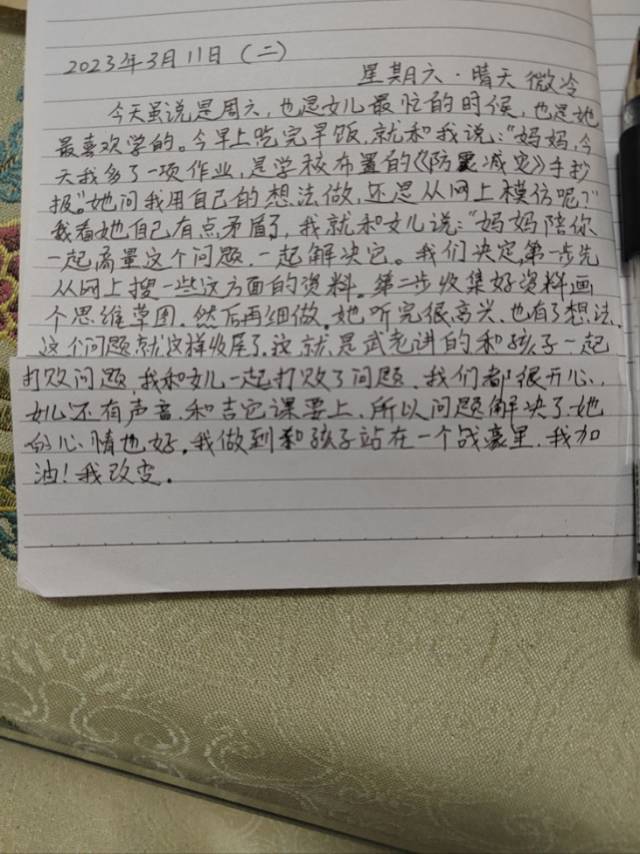 2023年3月11日（二）
星期六·晴天 微冷
今天虽说是周六，也是女儿最忙的时候，也是她
最喜欢学的。今早上吃完早饭，就和我说："妈妈，今
天我多了一项作业，是学校布置的《防震减灾》手抄
报。"她问我用自己的想法做，还是从网上模仿呢？"
我看她自己有点矛盾了，我就和女儿说："妈妈陪你
一起商量这个问题，一起解决它。我们决定，第一步先
从网上搜一些这方面的资料。第二步收集好资料画
个思维草图，然后再细做。她听完很高兴，也有了想法，
这个问题就这样收尾了，这就是武老讲的和孩子一起
打败问题，我和女儿一起打败了问题，我们都很开心，
女儿还有声音和吉它课要上，所以问题解决了，她
的心情也好。我做到和孩子站在一个战壕里，我加
油！我改变。